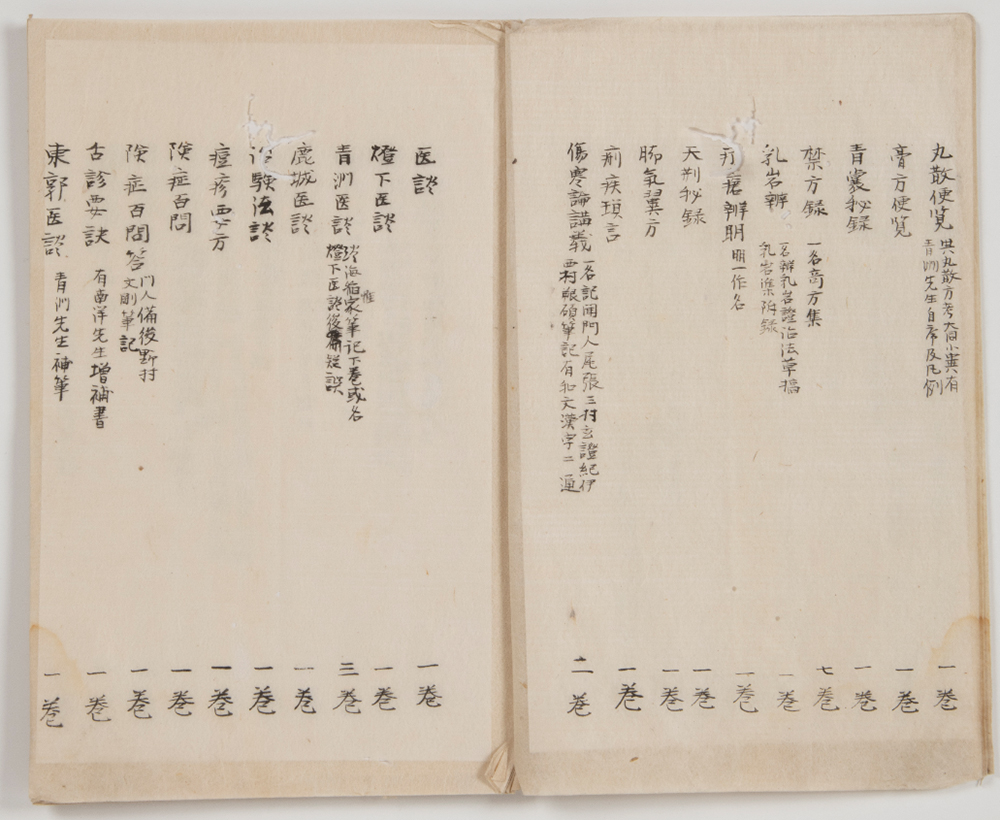 丸散便覧 共丸散方考大同小異有 一巻
青洲先生自序及凡例
膏方便覧 一巻
青嚢秘録 一巻
禁方録 一名高方集 七巻
乳岩辨 一名辨乳岩證治法草稿 一巻
乳岩集附録
疔瘡辨明 明一作名 一巻
天刑秘録 一巻
脚氣翼方 一巻
痢疾瑣言 一巻
傷寒論講義 一名記聞門人尾張三村玄證紀伊 二巻
西村 筆記有和文漢字二通
医談 一巻
燈下医談 一巻
青洲医談 家筆記下巻或名 三巻
燈下医談後 誤
鹿城医談 一巻
治験法談 一巻
痘疹要方 一巻
険症百問 一巻
険症百問答 門人備後野村 一巻
文剛筆記
舌診要訣 有南洋先生増補書 一巻
東郭医談 青洲先生補筆 一巻